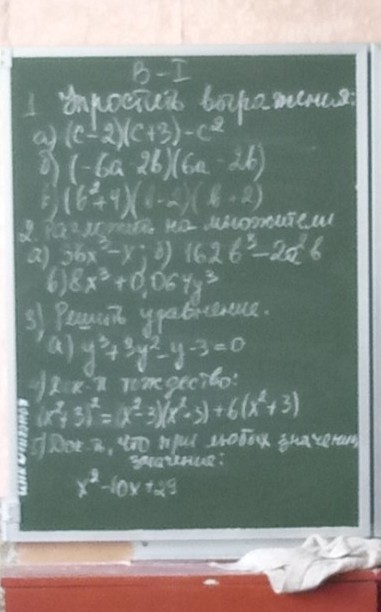 В-I
1 Упростить выражения:
а) (c-2)(c+3)-c²
б) (-6a 2b)(6a-2b)
(b²+4)(b-2)(b+2)
2. Разложить на множители
а) 36x³-x; б) 162b³-2a²b
в) 8x³+0,064y³
3) Решить уравнение.
а) y³+3y²-y-3=0
4) Док-ть тождество:
(x²+3)²=(x²-3)(x²-3)+6(x²+3)
5) Док-ть, что при любых значениях
значение:
x²-10x+29